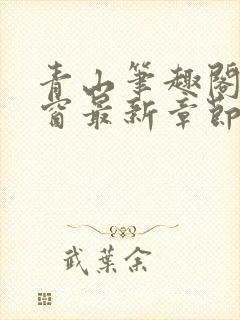 青山筆趣閣
窗最新章節
武葉余